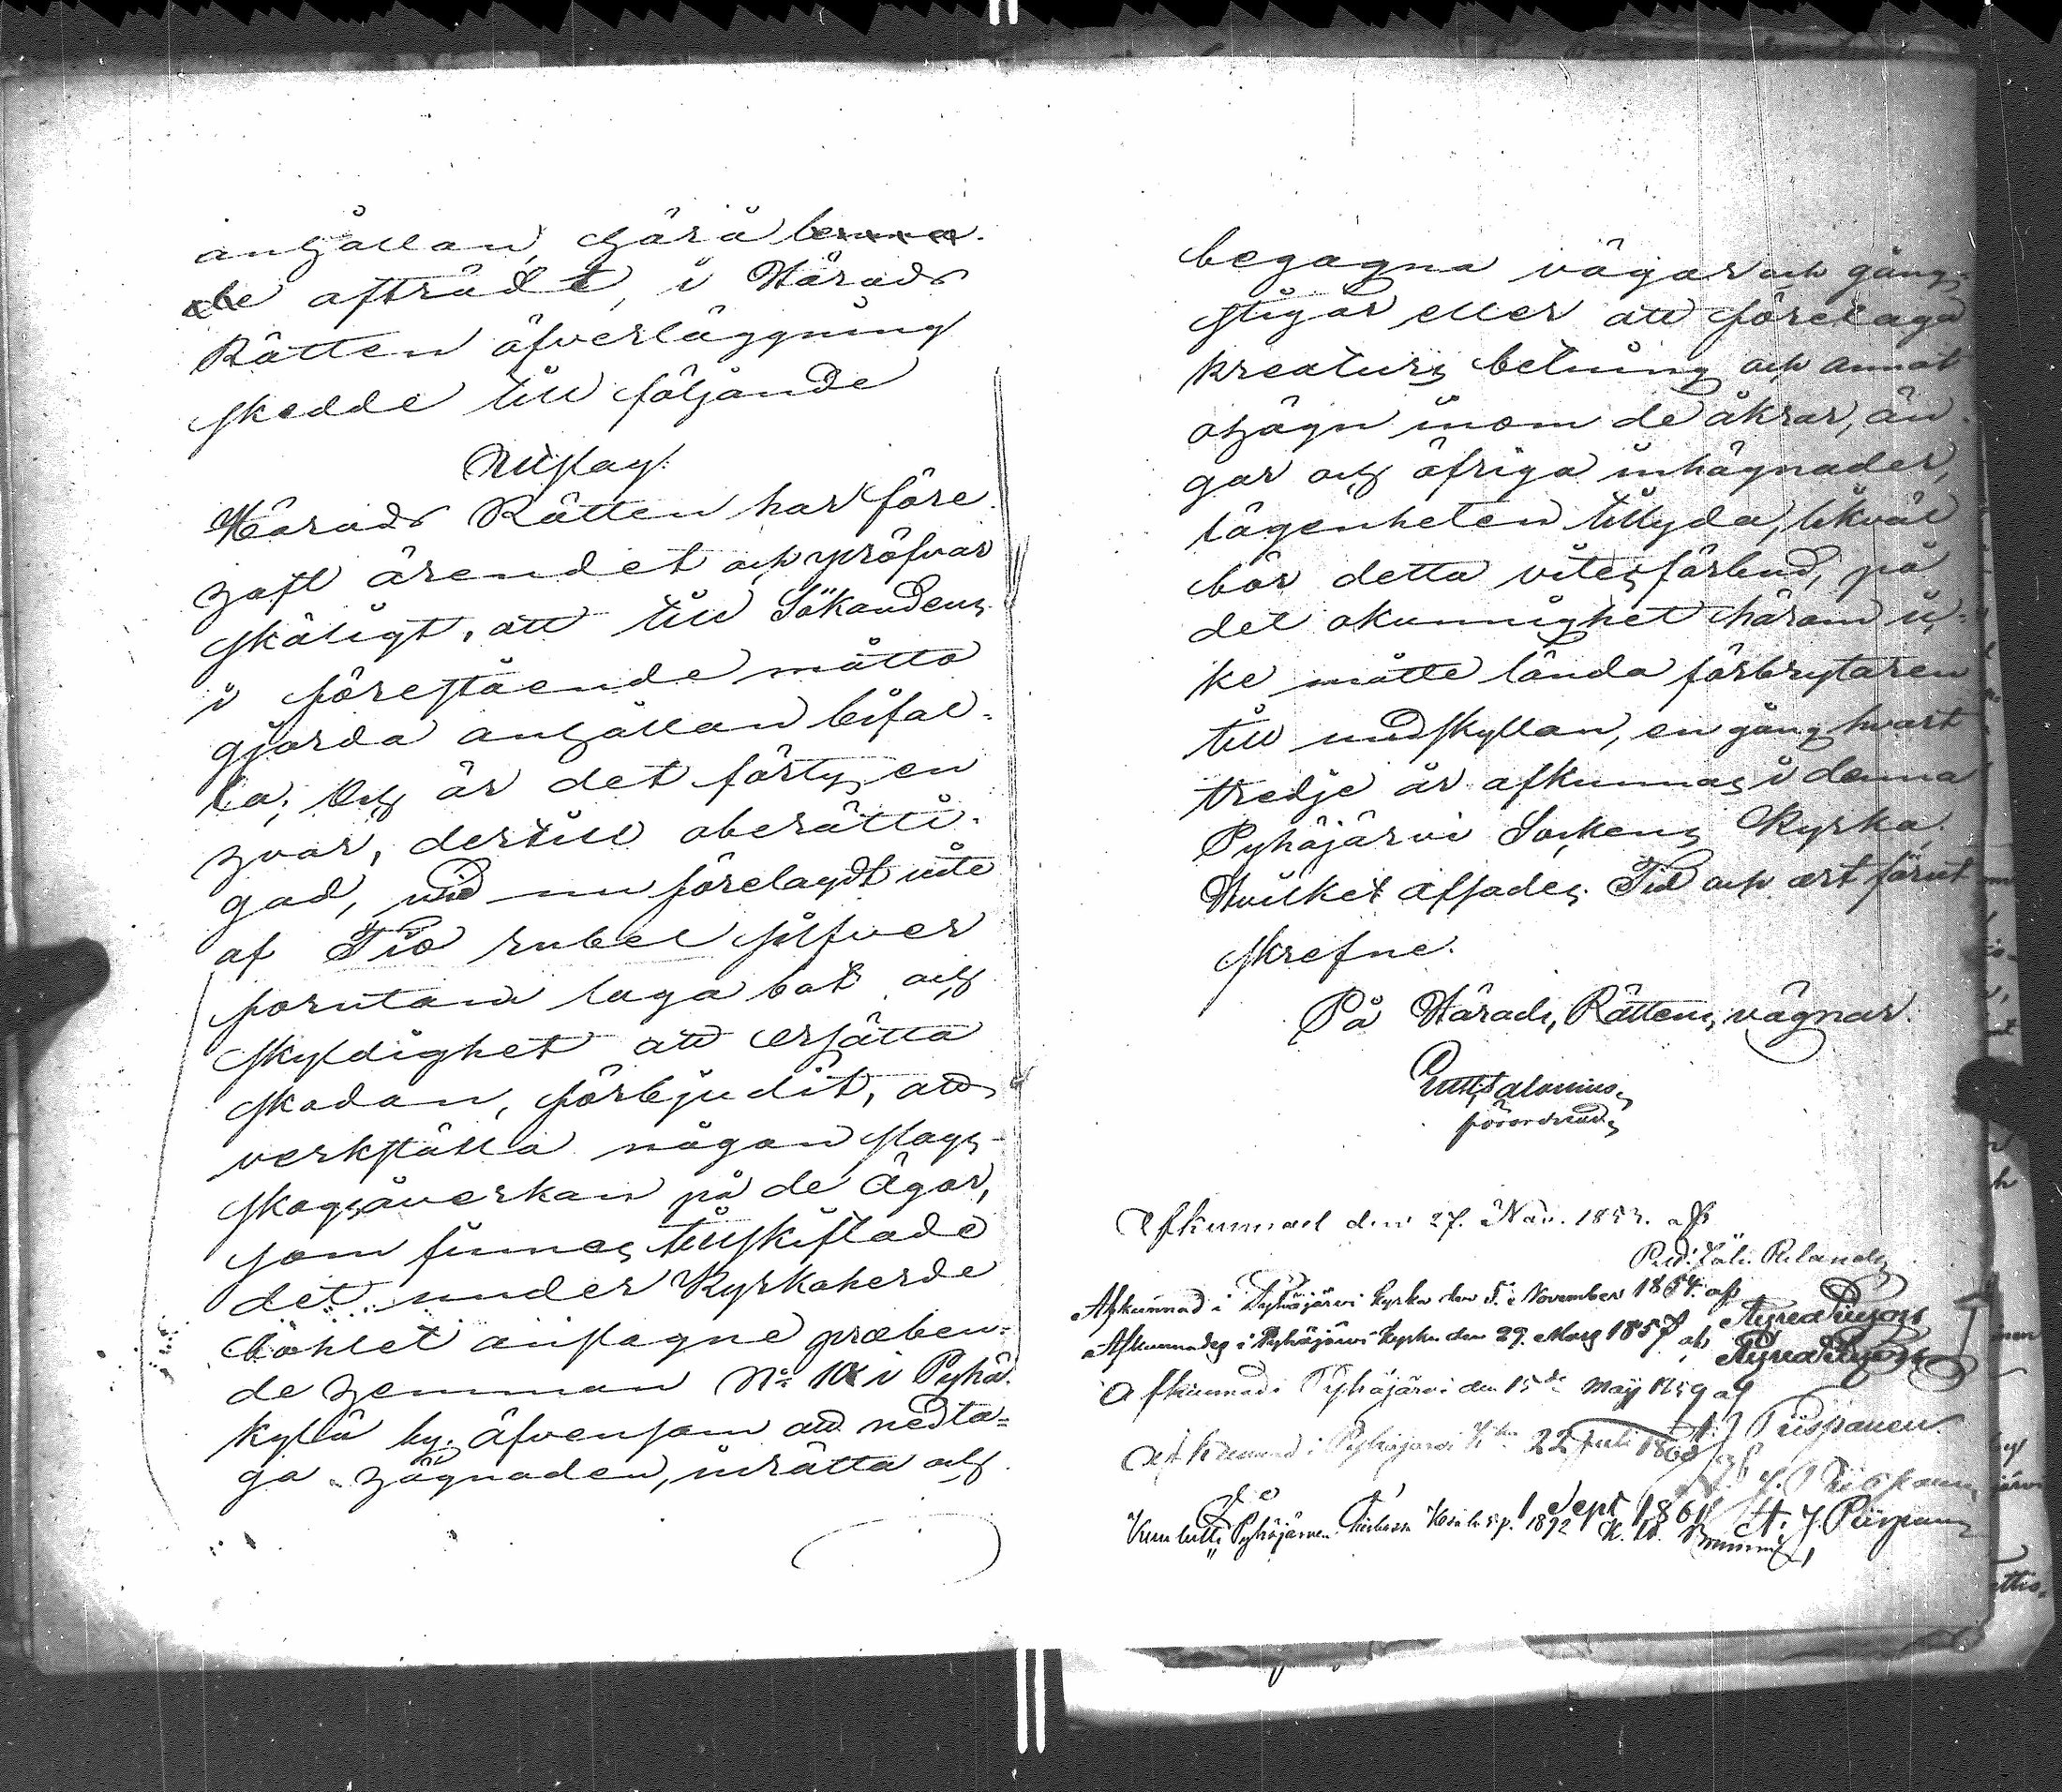 anhållan, härå
afträdt, i Härads
Rätten öfverläggning
skedde till följande
Utslag:
Härads Rätten har före
haft ärendet och pröfvar
skäligt, att till Sökandens
i förestående måtto
gjorda anhållan bifal-
la; Och är det förty en
hvar, dertill oberätti-
gad, vid nu förelagdt vite
af Tio rubel silfver
förutom laga bot och
skyldighet att ersätta
skadan, förbjudit, att
verkställa någon slags
skogsåverkan på de Ägor,
som finnes tillskiftade
det under Kyrkoherde
bohlet anslagne præben-
de hemman No 10 i Pyhä-
kylä by, äfvensom att nedta-
ga hägnaden, inrätta och
begagna vägar och gång-
stigar eller att företaga
kreaturs betning och annat
ohägn inom de åkrar, än-
gar och öfriga inhägnader,
lägenheten tillyda, likväl
bör detta vitesförbud, på
det okunnighet härom ic-
ke måtte lända förbrytaren
till undskyllan, en gång hvart
tredje år afkunnas i denna
Pyhäjärvi Sockens Kyrka.
Hvilket afsades. Tid och ort förut
skrefne.
På Härads Rättens vägnar.
förordnad
Afkunnad den 27. Nov. 1853. af
Afkunnad i Pyhäjärvi Kyrka den 5. November 1854. af
Afkunnades i Pyhäjärvi Kyrka den 29. Mars 1857 af
Afkunnad i Pyhäjärvi den 15de Maij 1859 af
A. J. Piispanen
Afkunnad i Pyhäjärvi 22 Juli 1860 af
1 Sept 1861 A. J. Piispanen
Kuulutti Pyhäjärven 1892 K. W.